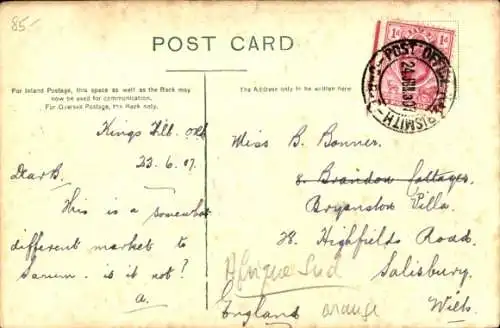 85-
POST CARD
For Inland Postage, this space as well as the Back may
now be used for communication.
For Oversea Postage, the Back only.
The Address only to be written here
1d 1d
POST OFFICE
SMITH
Kings
23.6.07.
Dear B.
This is a somewhat
different market to
Sarum. is it not?
a.
Miss B. Bonner.
8. Brandon Cottages,
Bryanston Villa.
Highfields Road.
Salisbury.
Wilts.
England
Afrique Sud
orange